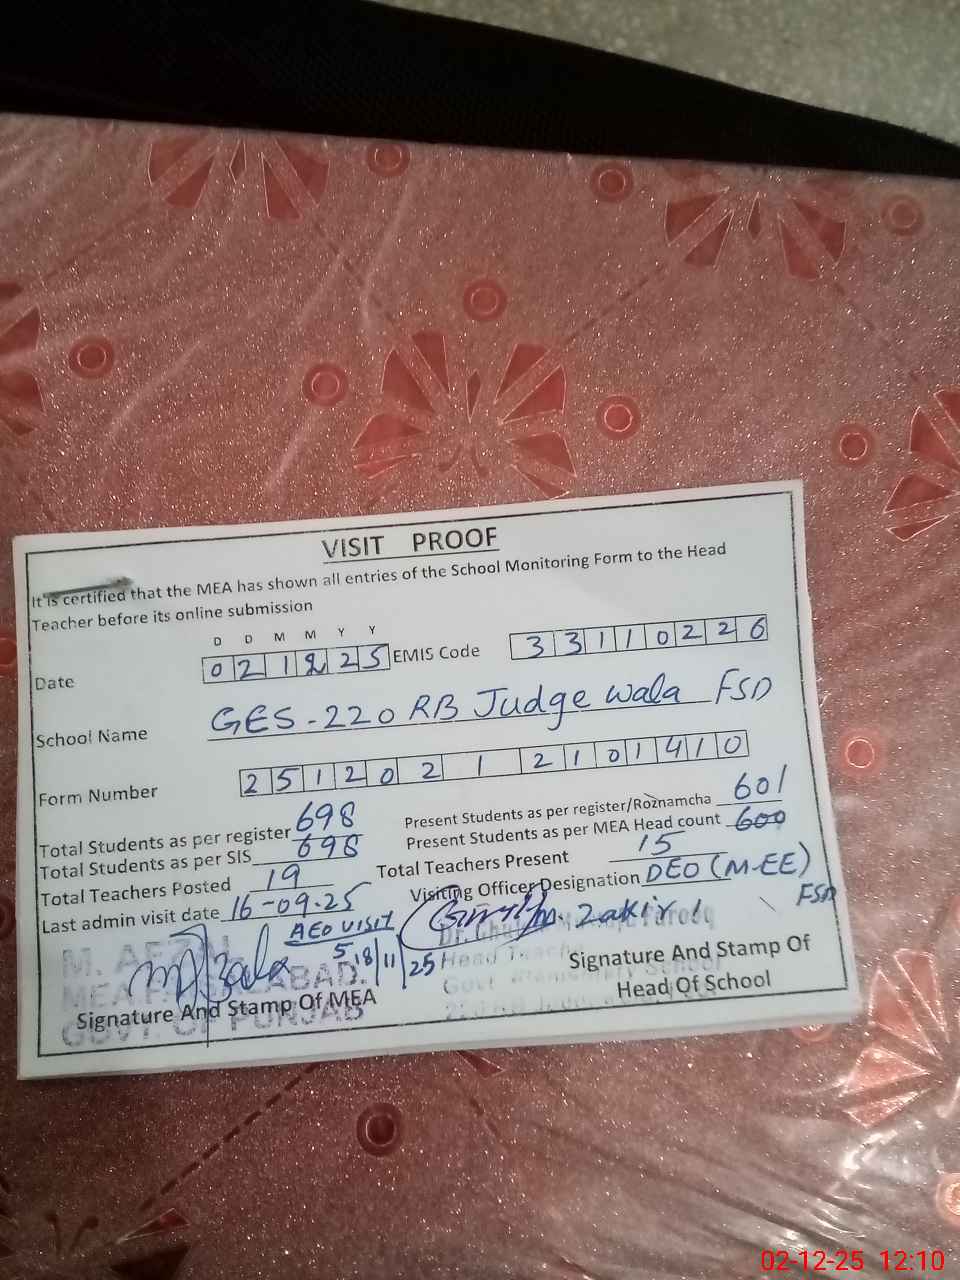 VISIT PROOF
It is certified that the MEA has shown all entries of the School Monitoring Form to the Head
Teacher before its online submission
D D M M Y Y
Date 0 2 1 2 2 5 EMIS Code 3 3 1 1 0 2 2 6
School Name GES-220 RB Judge wala FSD
Form Number 2 5 1 2 0 2 1 2 1 0 1 4 1 0
Total Students as per register 698 Present Students as per register/Roznamcha 601
Total Students as per SIS 698 Present Students as per MEA Head count 600
Total Teachers Posted 19 Total Teachers Present 15
Last admin visit date 16-09-25 Visiting Officer Designation DEO (M-EE) FSD
AEO VISIT M. Zakir
18/11/25
M. AFZAL
MEA FAISALABAD.
GOVT. OF PUNJAB
Head Teacher
Signature And Stamp Of MEA
Signature And Stamp Of
Head Of School
02-12-25 12:10